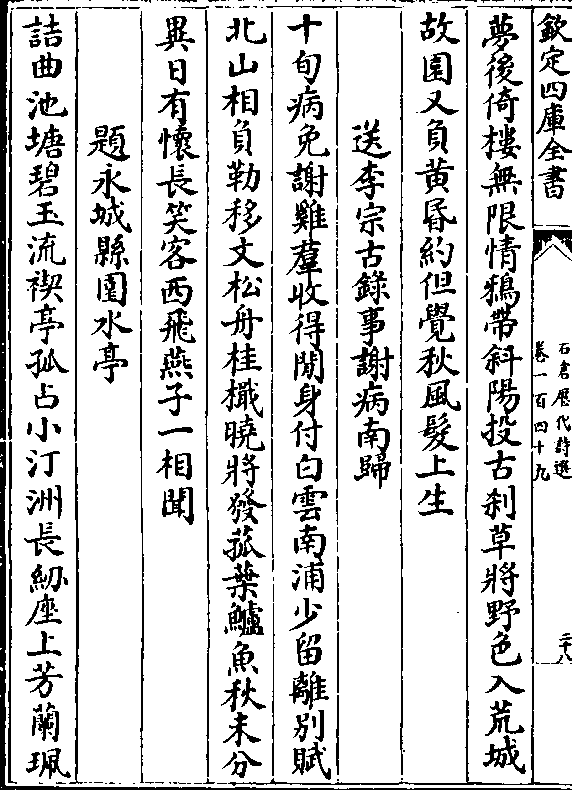 欽定四庫全書
石倉歷代詩選
卷一百四十九
二十八
夢後倚樓無限情鵶帶斜陽投古刹草將野色入荒城
故園又負黃昏約但覺秋風髮上生
送李宗古錄事謝病南歸
十旬病免謝雞羣收得閒身付白雲南浦少留離別賦
北山相負勒移文松舟桂檝曉將發菰葉鱸魚秋未分
異日有懷長笑客西飛燕子一相聞
題永城縣園水亭
詰曲池塘碧玉流禊亭孤占小汀洲長紉座上芳蘭珮